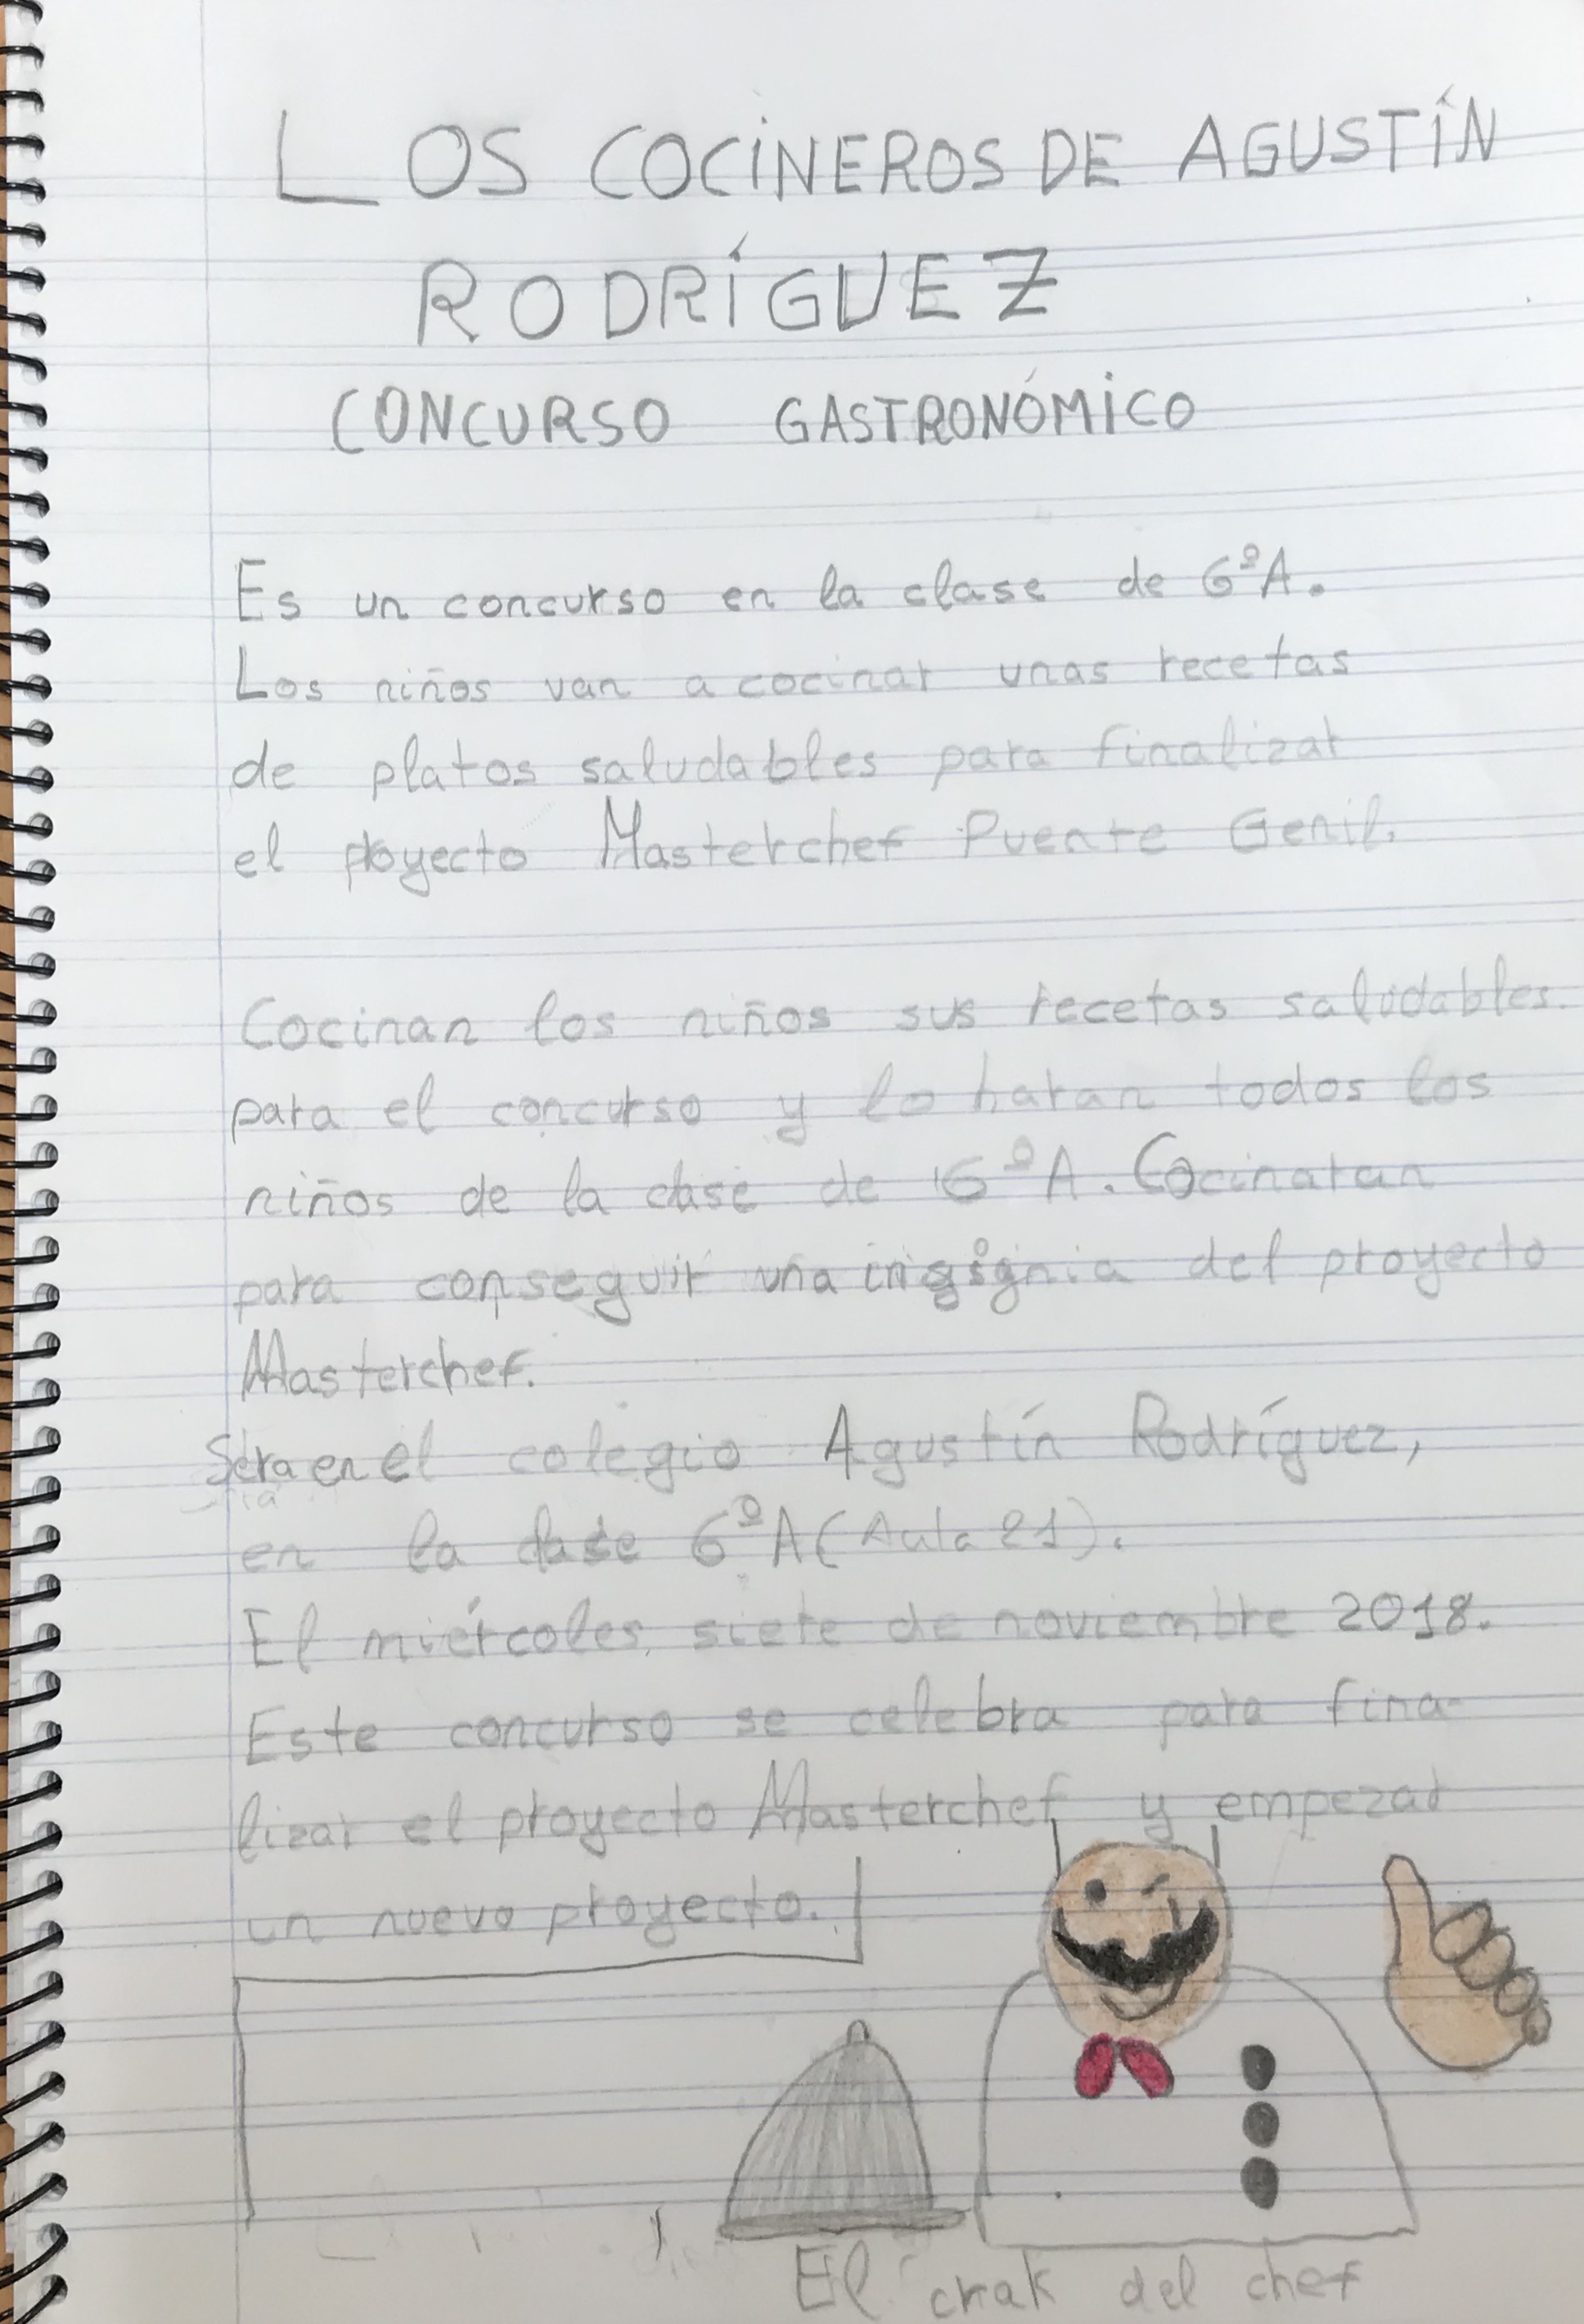 LOS COCINEROS DE AGUSTÍN
RODRÍGUEZ
CONCURSO GASTRONÓMICO
Es un concurso en la clase de 6ºA.
Los niños van a cocinar unas recetas
de platos saludables para finalizar
el proyecto Masterchef Puente Genil.
Cocinan los niños sus recetas saludables.
para el concurso y lo haran todos los
niños de la clase de 6ºA. Cocinaran
para conseguir una insignia del proyecto
Masterchef.
Sera en el colegio Agustín Rodríguez,
en la clase 6ºA (Aula 21).
El miércoles, siete de noviembre 2018.
Este concurso se celebra para fina-
lizar el proyecto Masterchef y empezar
un nuevo proyecto.
El crak del chef